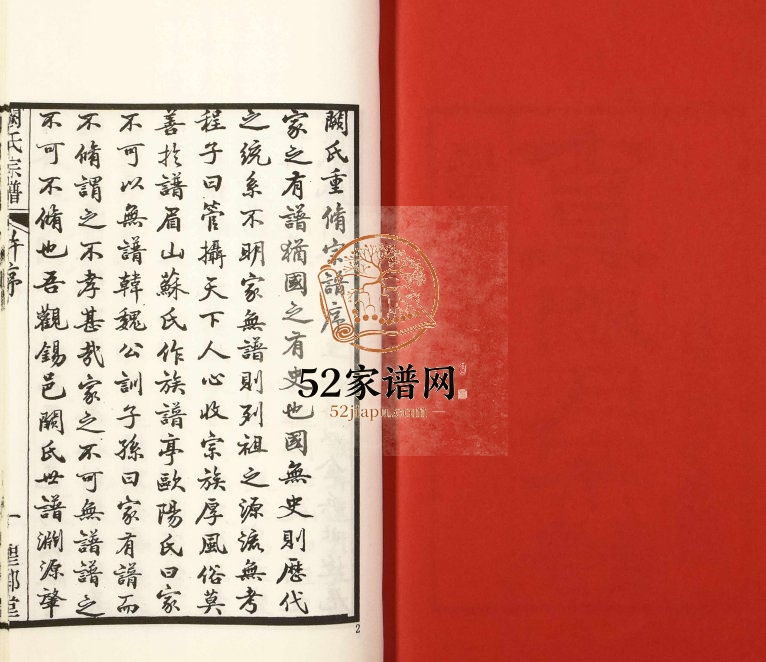 闕氏重脩宗譜序
家之有譜猶國之有史也國無史則歷代
之統系不明家無譜則列祖之源流無考
程子曰管攝天下人心收宗族厚風俗莫
善於譜眉山蘇氏作族譜亭歐陽氏曰家
不可以無譜韓魏公訓子孫曰家有譜而
不脩謂之不孝甚哉家之不可無譜譜之
不可不脩也吾觀錫邑闕氏世譜淵源肇
闕氏宗譜
序
一
2
52家谱网
52jiapu.com